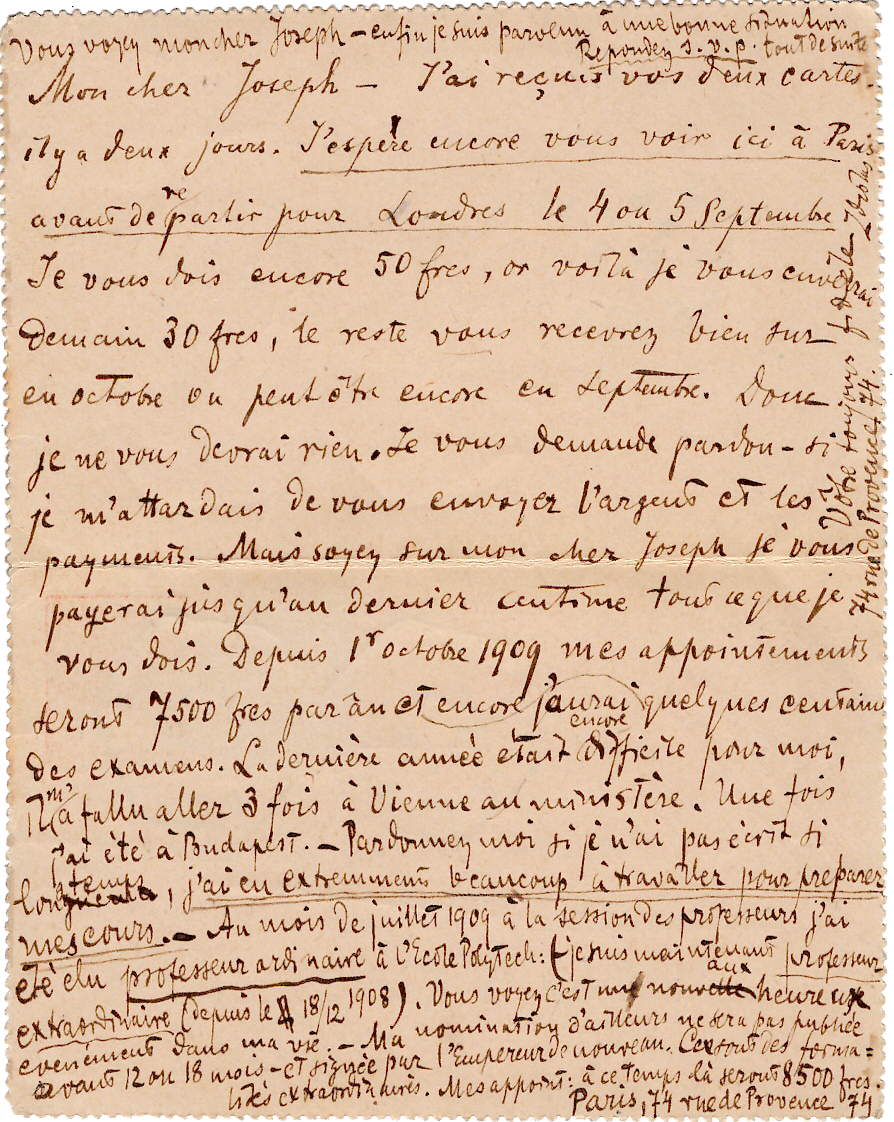 Vous voyez mon cher Joseph – enfin je suis parvenu à une bonne situation
Repondez s.v.p. tout de suite
Mon cher Joseph – J'ai reçuis vos deux cartes.
il y a deux jours. J'espère encore vous voir ici à Paris
avant de repartir pour Londres le 4 ou 5 Septembre
Je vous dois encore 50 frcs, or voilà je vous enverai
demain 30 frcs, le reste vous recevrez bien sur
en octobre ou peut être encore en Septembre. Donc
je ne vous devrai rien. Je vous demande pardon – si
je m'attardais de vous envoyer l'argent et les
payments. Mais soyez sur mon cher Joseph je vous
payerai jusqu'au dernier centime tout ce que je
vous dois. Depuis 1r octobre 1909 mes appointements
seront 7500 frcs par an et encore j'aurai quelques centain
des examens. La dernière année était encore difficile pour moi,
Il m'a fallu aller 3 fois à Vienne au ministère. Une fois
j'ai été à Budapest. – Pardonnez moi si je n'ai pas écrit si
longtemps, j'ai eu extremment beaucoup à travailler pour preparer
mes cours. – Au mois de juillet 1909 à la session des professeurs j'ai
été elu professeur ordinaire à l'Ecole Polytech: (– je suis maintenant professeur
extraordinaire (depuis le 18/12 1908). Vous voyez c'est un nouveaux heureux
evenément dans ma vie. – Ma nomination d'ailleurs ne sera pas publiée
avant 12 ou 18 mois – et signée par l'Empereur de nouveau. Ce sont des forma=
lités extraordinaires. Mes appoint: à ce temps là seront 8500 frcs.
Paris, 74 rue de Provence 74
Vôtre toujours fidèle
74 rue de Provence. 74.